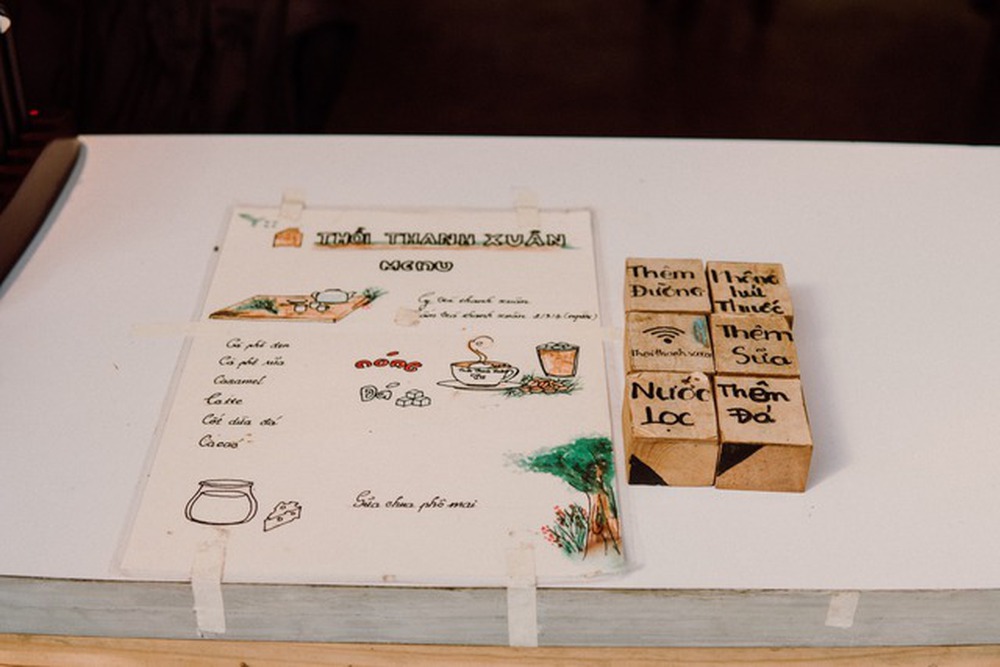 THỜI THANH XUÂN
MENU
Ly trà thanh xuân
ấm trà thanh xuân 2/3/6 (người)
Cà phê đen
Cà phê sữa
Caramel
Latte
Cốt dừa đá
Cacao
NÓNG
Đá
Sữa chua phô mai
Thêm
Đường
Không
hút
Thuốc
Thoithanhxuan
Thêm
Sữa
Nước
Lọc
Thêm
Đá